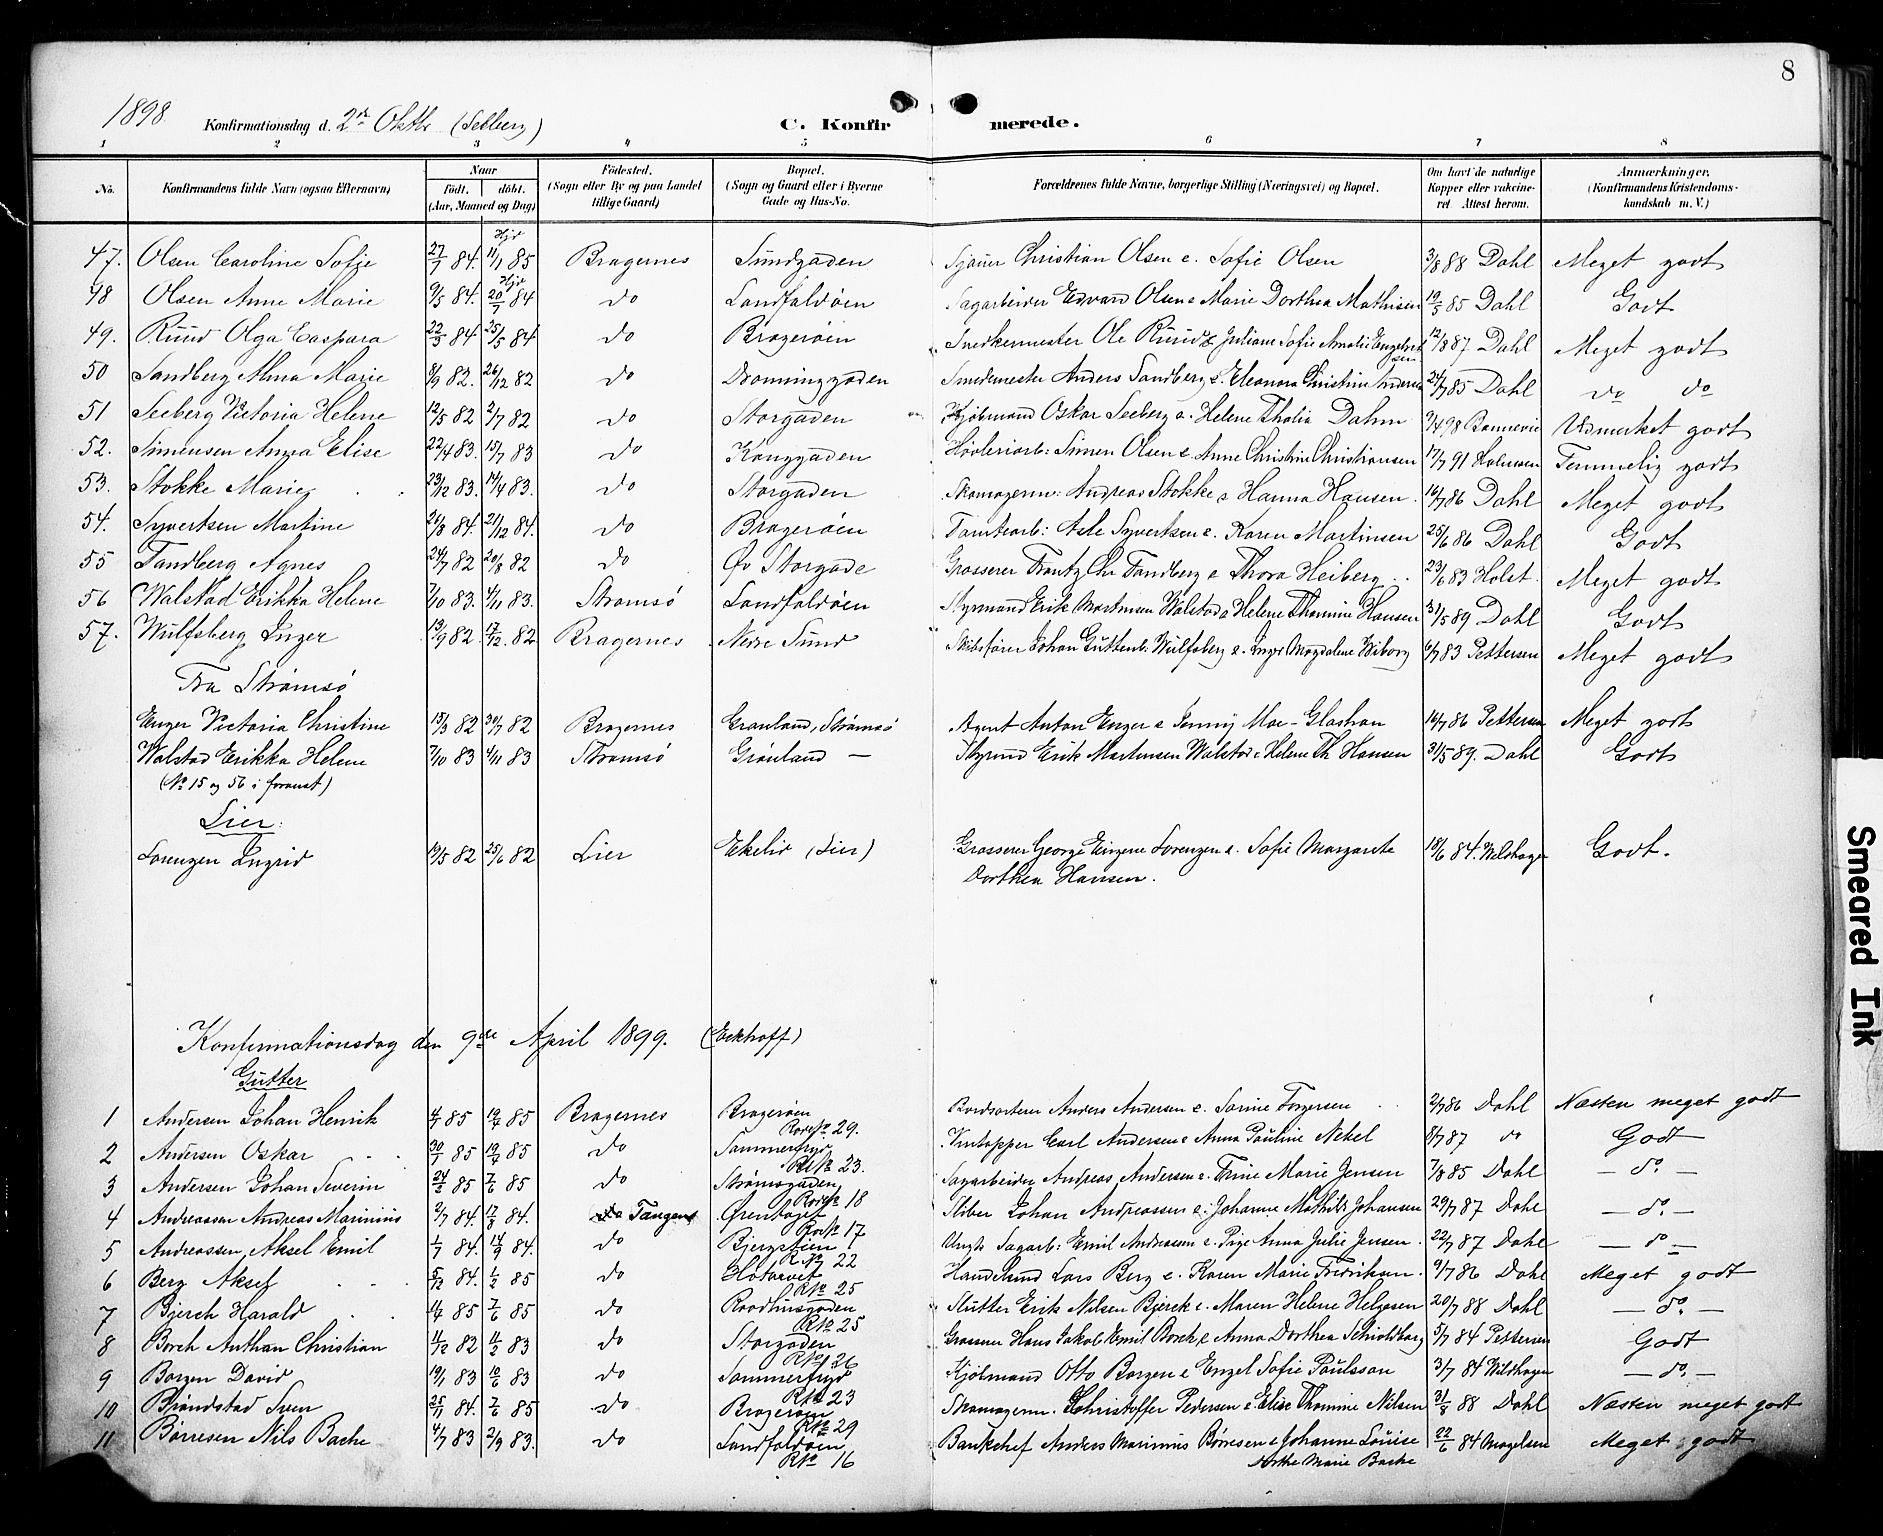 8
1898. Konfirmationsdag d. 2den Oktbr (Selberg) C. Konfirmerede.
1 2 3 4 5 6 7 8
No. Konfirmandens fulde Navn (ogsaa Efternavn) Naar født. døbt. (Aar, Maaned og Dag) Fødested. (Sogn eller By og paa Landet tillige Gaard) Bopæl. (Sogn og Gaard eller i Byerne Gade og Hus-No. Forældrenes fulde Navne, borgerlige Stilling (Næringsvei) og Bopæl. Om havt de naturlige Kopper eller vaccineret. Attest herom. Anmærkninger. (Konfirmandens Kristendomskundskab m. V.)
47. Olsen Caroline Sofie 27/7 84. Hjd 11/1 85 Bragernes Sundgaden Sjauer Christian Olsen e. Sofie Olsen 3/8 88 Dahl Meget godt
48 Olsen Anne Marie 9/5 84. Hjd 20/7 84 do Landfaldøen Sagarbeider Edvard Olsen e Marie Dorthea Mathisen 19/5 85 Dahl Godt
49. Ruud Olga Caspara 22/3 84 25/5 84 do Bragerøen Snedkermester Ole Ruud e Juliane Sofie Amalie Engebretsen 12/8 87 Dahl Meget godt
50 Sandberg Alma Marie 8/9 82. 26/12 82 do Dronninggaden Smedemester Anders Sandberg e. Eleonora Christine Andersen 24/7 85 Dahl do do
51 Seeberg Victoria Helene 12/5 82 2/7 82 do Storgaden Kjøbmand Oskar Seeberg e. Helene Thalia Dahm 9/4 98 Bonnevie Udmerket godt
52. Simensen Anna Elise 22/4 83. 15/7 83 do Konggaden Høvleriarb: Simen Olsen e. Anne Christine Christiansen 17/7 91 Halvorsen Temmelig godt
53. Stokke Marie 29/12 83. 14/4 83. do Storgaden Skomagerm: Andreas Stokke e Hanna Hansen 16/7 86 Dahl Meget godt
54. Syvertsen Martine 21/8 84. 21/12 84. do Bragerøen Tomtearb: Asle Syvertsen e. Karen Martinsen 25/6 86 Dahl Godt
55 Tandberg Agnes 24/7 82 20/8 82 do Øv Storgade Grosserer Frantz Chr Tandberg e Thora Heiberg 23/6 83 Holst Meget godt
56 Walstad Erikka Helene 7/10 83. 4/11 83. Strømsø Landfaldøen Styrmand Erik Martinsen Walstad e Helene Thomine Hansen 31/5 89. Dahl Godt
57. Wulfsberg Inger 13/9 82. 17/12. 82 Bragernes Nedre Sund Skibsfører Johan Guttenb. Wulfsberg e. Inger Magdalene Wiborg 6/7 83 Pettersen Meget godt
Fra Strømsø
Enger Victoria Christine 15/3 82 30/7 82 Bragernes Grønland, Strømsø Agent Anton Enger e Jenny Moe-Glashan 16/7 86 Pettersen Meget godt
Walstad Erikka Helene 7/10 83 4/11 83 Strømsø Grønland — Styrmd Erik Martinsen Walstad e Helene Th Hansen 31/5 89. Dahl Godt
(No 15 og 56 i foranst)
Lier:
Lorenzen Ingrid 19/5 82 25/6 82 Lier Ekelid (Lier) Grosserer George Eugene Lorenzen e. Sofie Margarete 18/6 84. Wildhagen Godt.
Dorthea Hansen.
Konfirmationsdag den 9de April 1899. (Eckhoff)
Gutter
1 Andersen Johan Henrik 4/5 85 19/7 85 Bragernes Bragerøen Rode No 29. Bordsorterer Anders Andersen e. Sarine Torgersen 2/7 86 Dahl Næsten meget godt
2 Andersen Oskar 30/1 85 19/7 85 do Sommerfryd R No 23. Vintapper Carl Andersen e Anna Pauline Nekel 8/7 87 do Godt
3 Andersen Johan Severin 24/2 85 7/6 85 do Strømsgaden Rode No 18 Sagarbeider Andreas Andersen e. Trine Marie Jensen 7/8 85 Dahl — do. —
4 Andreassen Andreas Marinius 2/7 84. 17/8 84. do Tangen Ørentoget Rode No 17 Sliber Johan Andreassen e. Johanne Mathilde Johansen 29/7 87 Dahl — do. —
5 Andreassen Aksel Emil 1/7 84. 14/9 84. do Bjergstien R No 22 Ungk Sagarb: Emil Andreassen e. Pige Anna Julie Jensen 22/7 87 Dahl — do —
6 Berg Aksel 5/12 84. 1/2 85 do Hotvedt R No 25 Handelsmd Lars Berg e. Karen Marie Fredriksen 9/7 86 Dahl Meget godt
7 Bjerch Harald 4/4 85 7/6 85 do Raadhusgaden R No 25 Slutter Erik Nilsen Bjerck e. Maren Helene Helgesen 20/7 88 Dahl — do. —
8 Borch Anthon Christian 11/12 82 4/3 83 do Storgaden R No 26 Grosserer Hans Jakob Emil Borch e. Anna Dorthea Schioldborg 5/7 84 Pettersen Godt
9 Borgen David 19/1 83 10/6 83 do Sommerfryd R No 23 Kjøbmand Otto Borgen e Engel Sofie Paulsson 3/7 84 Wildhagen — do. —
10 Brøndstad Sven 25/11 84. 7/6 85 do Bragerøen R No 29 Skomagerm. Christoffer Pedersen e. Elise Thomine Nilsen 31/8 88 Dahl Næsten meget godt
11 Børresen Nils Bache 4/7 83 2/9 83. do Landfaldøen R No 16 Bankchef Anders Marinius Børresen e Johanne Louise 22/6 84 Magelsen Meget godt
Dorthe Marie Bache
Smeared Ink